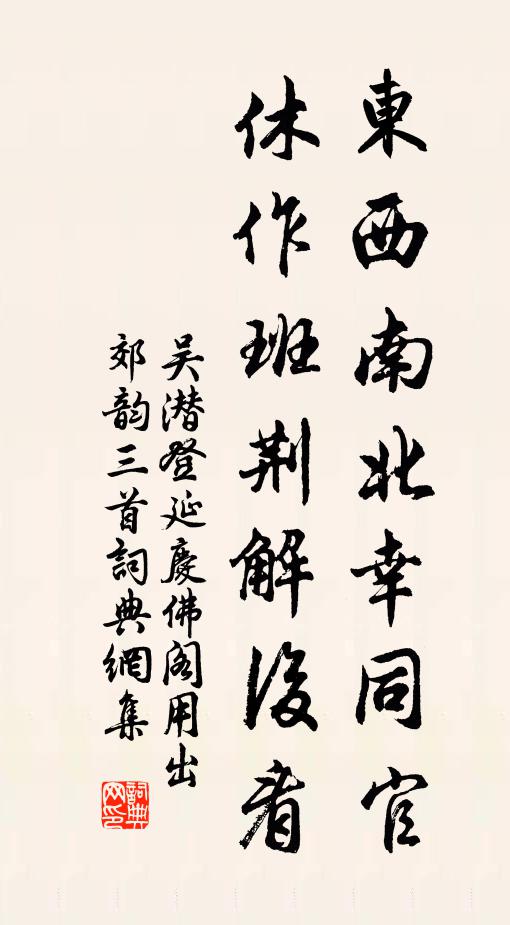 東西南北幸同官
休作班荆解後看
吴潜登延慶佛阁用出
郊韵三首詞典網集
詞典网印